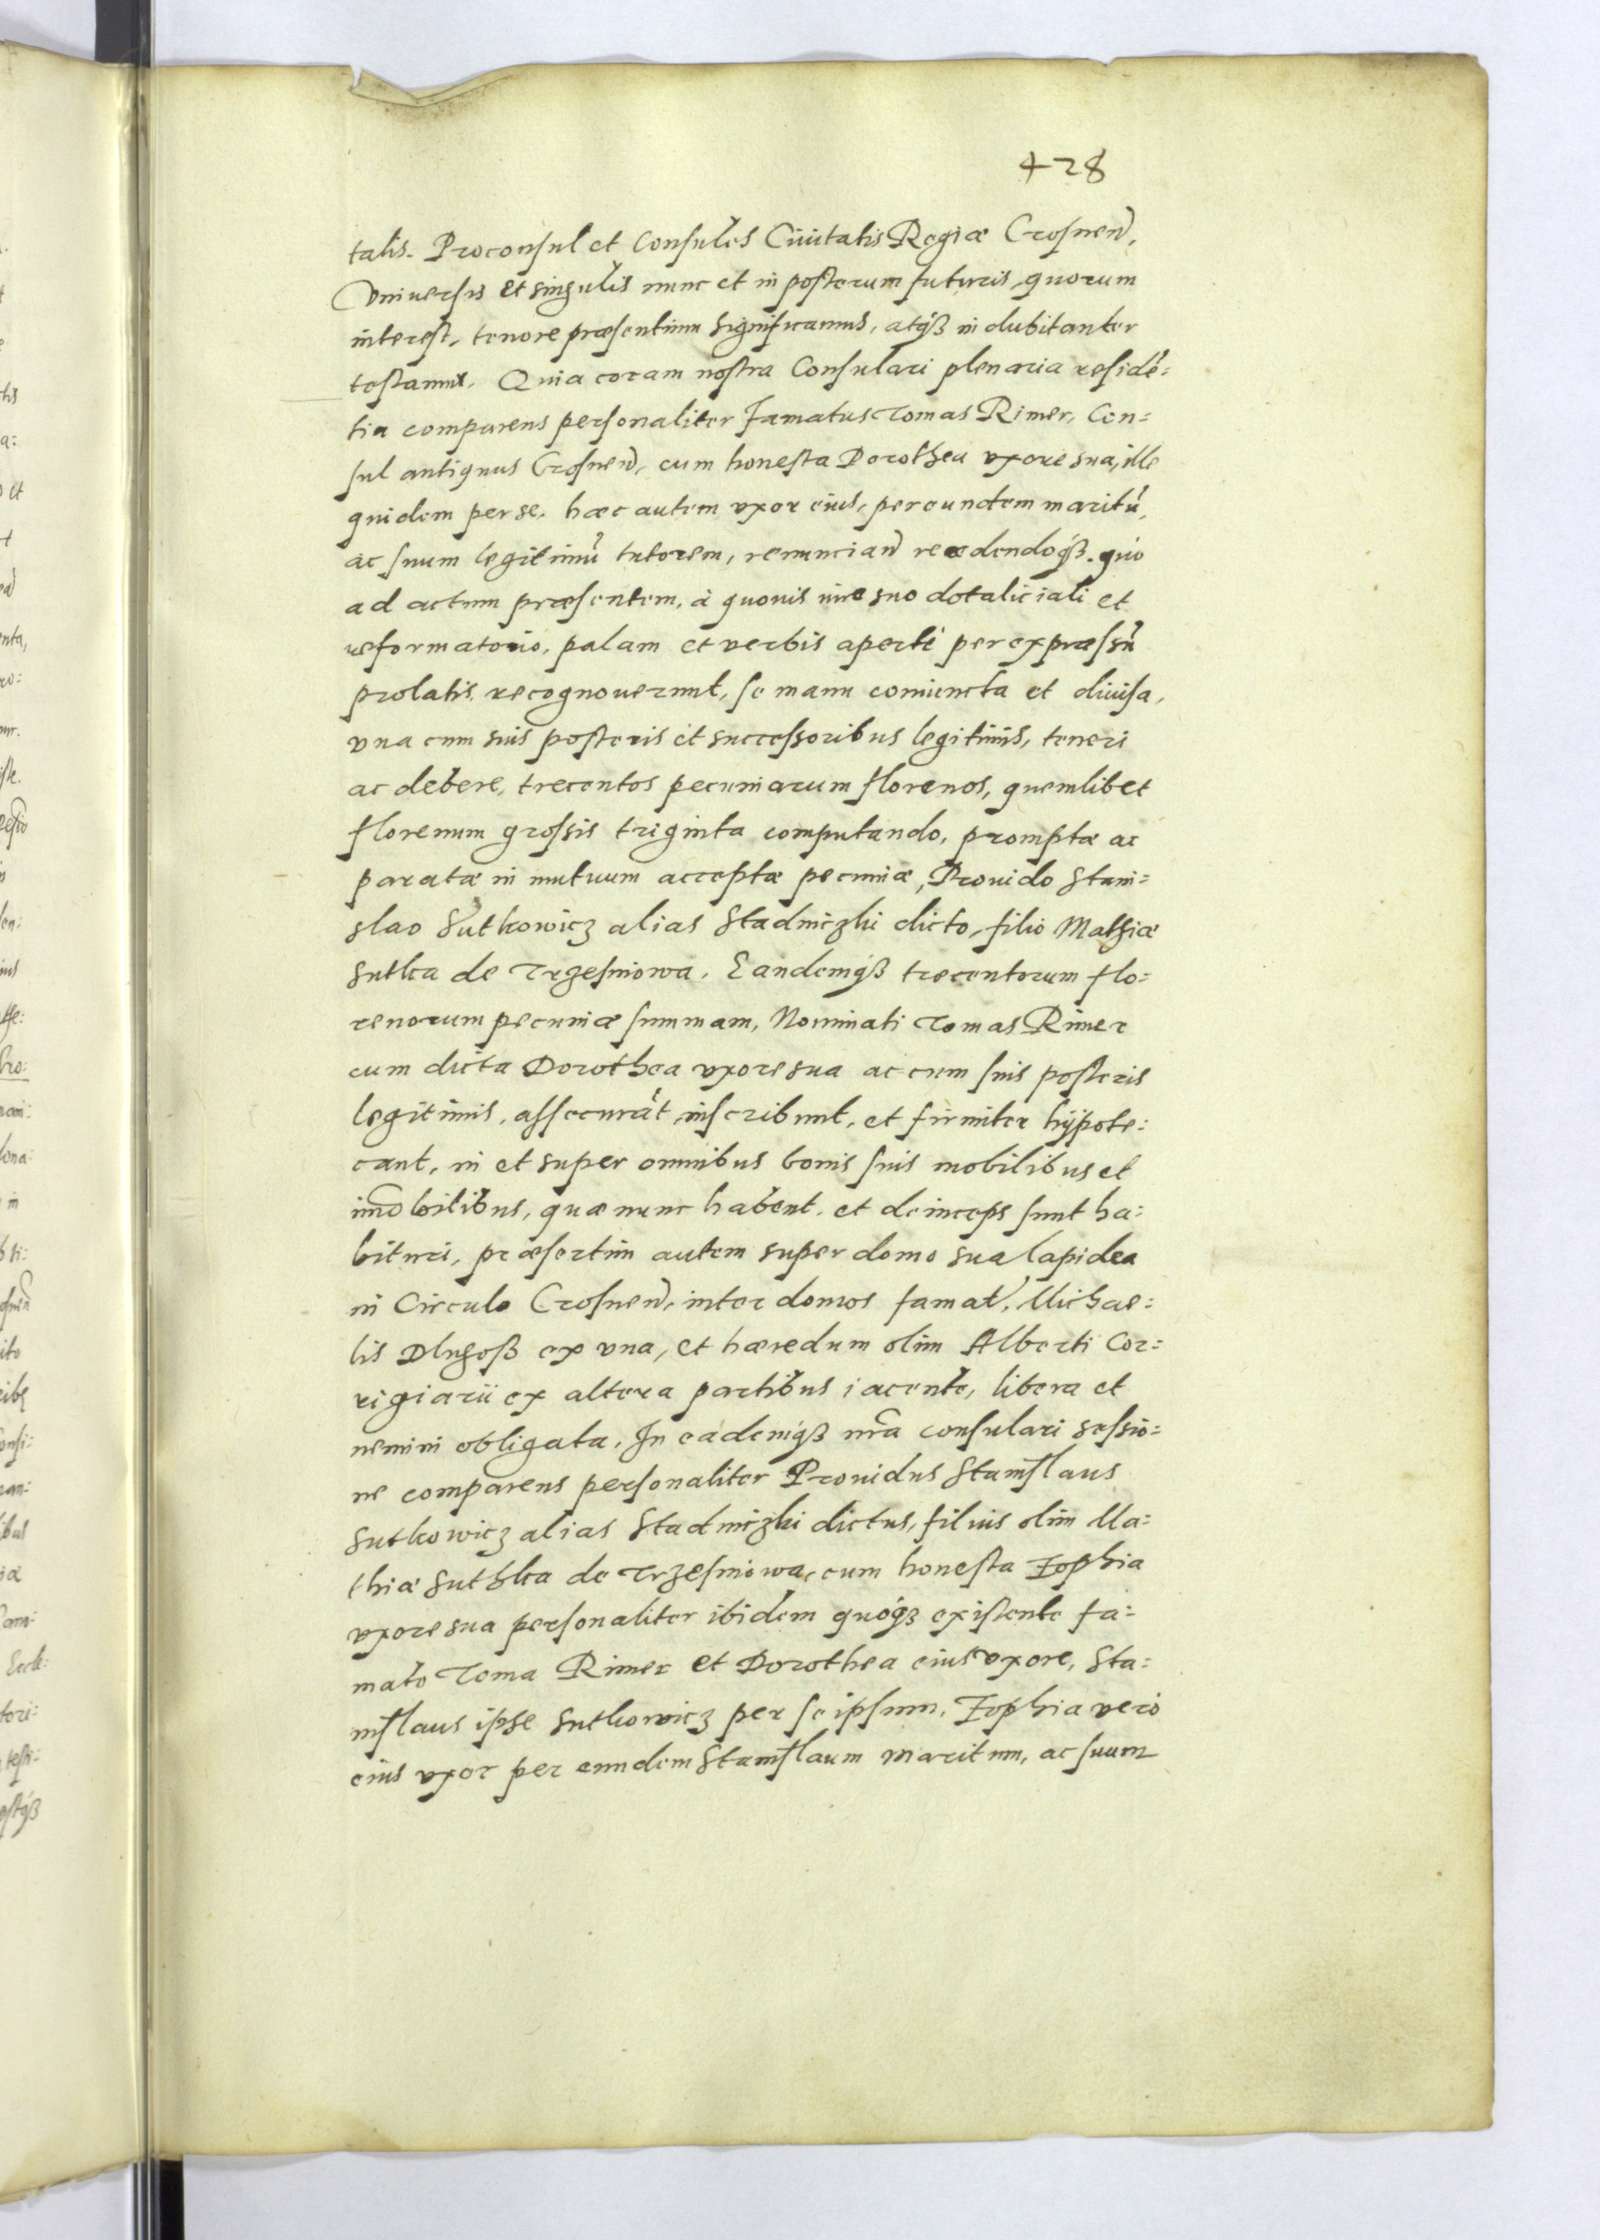 428
talis. Proconsul et Consules Ciuitatis Regiæ Crosnen̄,
Vniuersis et singulis nunc et in posterum futuris, quorum
interest, tenore præsentium significamus, atq́ß indubitanter
testamur. Quia coram nostra Consulari plenaria residē=
tia comparens personaliter Famatus Tomas Rimer, Con=
sul antiquus Crosnen̄, cum honesta Dorothea vxore sua, ille
quidem per se, hæc autem vxor eius, per eundem maritū,
ac suum legitimū tutorem, renuncian̄ recedendoq́ß. quò
ad actum præsentem, à quouis iure suo dotaliciali et
reformatorio, palam et verbis aperté per expræssū
prolatis recognouerunt, se manu coniuncta et diuisa,
vna cum suis posteris et successoribus legitimis, teneri
ac debere, trecentos pecuniarum florenos, quemlibet
florenum grossis triginta computando, promptæ ac
paratæ in mutuum acceptæ pecuniæ, Prouido Stani=
slao Sutkowicz alias Stadniczki dicto, filio Mathiæ
Sutka de Trzesniowa. Eandemq́ß trecentorum flo=
renorum pecuniæ summam, Nominati Tomas Rimer
cum dicta Dorothea vxore sua ac cum suis posteris
legitimis, assecurāt, inscribunt, et firmiter hÿpote=
cant, in et super omnibus bonis suis mobilibus et
im̄obilibus, quæ nunc habent, et deinceps sunt ha=
bituri, præsertim autem super domo sua lapidea
in Circulo Crosnen̄, inter domos famat̄, Michae=
lis Dlugoß ex vna, et hæredum olim Alberti Cor=
rigiarii ex altera partibus iacente, libera et
nemini obligata. In eademq́ß nr̄a consulari sessio=
ne comparens personaliter Prouidus Stanislaus
Sutkowicz alias Stadniczki dictus, filius olim Ma=
thiæ Suthka de Trzesniowa, cum honesta Zophia
vxore sua personaliter ibidem quóqz existente fa=
mato Toma Rimer et Dorothea eius vxore, Sta=
nislaus ipse Sutkowicz per se ipsum, Zophia verò
eius vxor per eundem Stanislaum maritum, ac suum